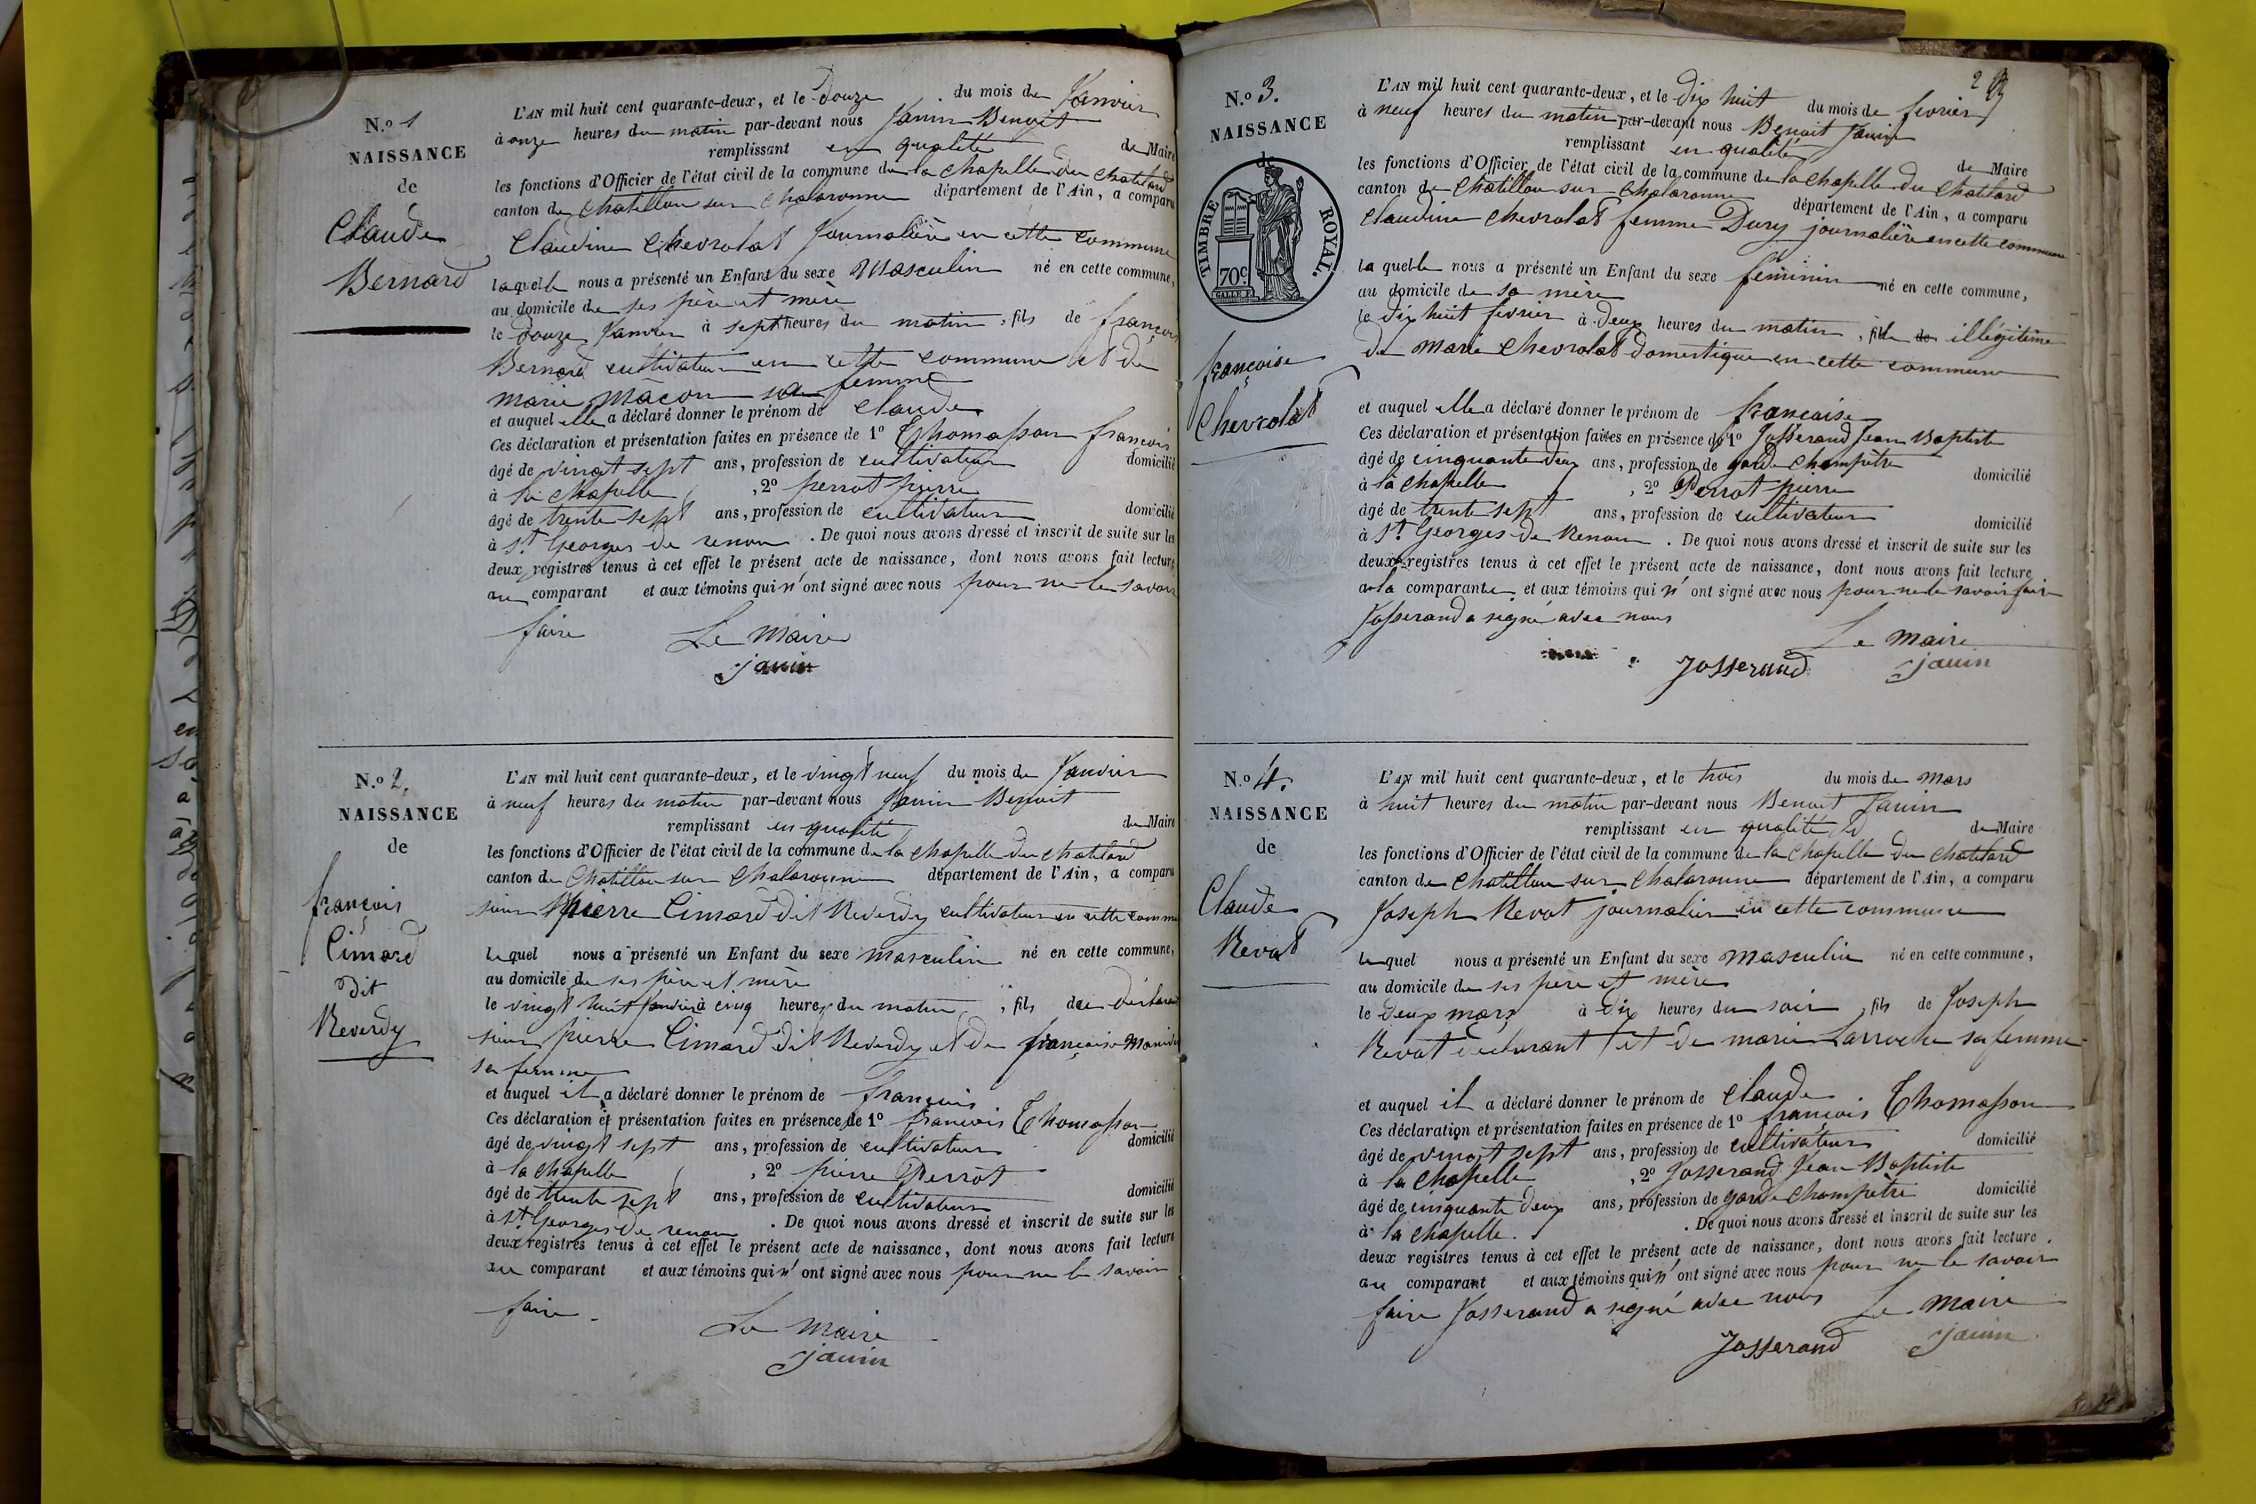 N.o 1
NAISSANCE
de
Claude
Bernard
L'AN mil huit cent quarante-deux, et le douze du mois de Janvier
à onze heures du matin par-devant nous Janin Benoit
remplissant en qualité de Maire
les fonctions d'Officier de l'état civil de la commune de la chapelle du chatelard
canton de Chatillon sur chalaronne département de l'Ain, a comparu
Claudine Chevrolat Journalière en cette commune
laquelle nous a présenté un Enfant du sexe Masculin né en cette commune,
au domicile de ses père et mère
le douze Janvier à sept heures du matin, fils de françois
Bernard cultivateur en cette commune et de
marie Mâcon sa femme
et auquel elle a déclaré donner le prénom de Claude
Ces déclaration et présentation faites en présence de 1o Thomasson françois
âgé de vingt sept ans, profession de cultivateur domicilié
à la chapelle, 2o perrot pierre
âgé de trente sept ans, profession de cultivateur domicilié
à St Georges de renon. De quoi nous avons dressé et inscrit de suite sur les
deux registres tenus à cet effet le présent acte de naissance, dont nous avons fait lecture
au comparant et aux témoins qui n'ont signé avec nous pour ne le savoir
faire Le Maire
janin
N.o 2.
NAISSANCE
de
françois
Cimard
dit
Reverdy
L'AN mil huit cent quarante-deux, et le vingt neuf du mois de Janvier
à neuf heures du matin par-devant nous Janin Benoit
remplissant en qualité de Maire
les fonctions d'Officier de l'état civil de la commune de la chapelle du chatelard
canton de Chatillon sur Chalaronne département de l'Ain, a comparu
sieur pierre Cimard dit Reverdy cultivateur en cette commune
lequel nous a présenté un Enfant du sexe masculin né en cette commune,
au domicile de ses père et mère
le vingt huit Janvier à cinq heures du matin, fils de declarant
sieur pierre Cimard dit Reverdy et de françoise
sa femme
et auquel il a déclaré donner le prénom de françois
Ces déclaration et présentation faites en présence de 1o francois Thomasson
âgé de vingt sept ans, profession de cultivateur domicilié
à la chapelle, 2o pierre Perrot
âgé de trente sept ans, profession de cultivateur domicilié
à St Georges de renon. De quoi nous avons dressé et inscrit de suite sur les
deux registres tenus à cet effet le présent acte de naissance, dont nous avons fait lecture
au comparant et aux témoins qui n'ont signé avec nous pour ne le savoir
faire. Le Maire
janin
2
N.o 3.
NAISSANCE
de
TIMBRE ROYAL.
70c
françoise
Chevrolat
L'AN mil huit cent quarante-deux, et le dix huit du mois de fevrier
à neuf heures du matin par-devant nous Benoit Janin
remplissant en qualité de Maire
les fonctions d'Officier de l'état civil de la commune de la chapelle du chatelard
canton de Chatillon sur Chalaronne département de l'Ain, a comparu
Claudine Chevrolat femme Dury journalière en cette commune
laquelle nous a présenté un Enfant du sexe feminin né en cette commune,
au domicile de sa mère
le dix huit fevrier à deux heures du matin, fille illégitime
de marie Chevrolat domestique en cette commune
et auquel elle a déclaré donner le prénom de francoise
Ces déclaration et présentation faites en présence de 1o Josserand Jean Baptiste
âgé de cinquante deux ans, profession de garde champêtre domicilié
à la chapelle, 2o Perrot pierre
âgé de trente sept ans, profession de cultivateur domicilié
à St Georges de Renon. De quoi nous avons dressé et inscrit de suite sur les
deux registres tenus à cet effet le présent acte de naissance, dont nous avons fait lecture
a la comparante et aux témoins qui n'ont signé avec nous pour ne le savoir faire
Josserand a signé avec nous
Le maire
Josserand janin
N.o 4.
NAISSANCE
de
Claude
Revat
L'AN mil huit cent quarante-deux, et le trois du mois de mars
à huit heures du matin par-devant nous Benoit Janin
remplissant en qualité de Maire
les fonctions d'Officier de l'état civil de la commune de la chapelle du chatelard
canton de Chatillon sur chalaronne département de l'Ain, a comparu
Joseph Revat journalier en cette commune
lequel nous a présenté un Enfant du sexe masculin né en cette commune,
au domicile de ses père et mère
le deux mars à dix heures du soir, fils de Joseph
Revat declarant et de marie Larroche sa femme
et auquel il a déclaré donner le prénom de Claude
Ces déclaration et présentation faites en présence de 1o françois Thomasson
âgé de vingt sept ans, profession de cultivateur domicilié
à la chapelle, 2o Josserand Jean Baptiste
âgé de cinquante deux ans, profession de garde champêtre domicilié
à la chapelle. De quoi nous avons dressé et inscrit de suite sur les
deux registres tenus à cet effet le présent acte de naissance, dont nous avons fait lecture
au comparant et aux témoins qui n'ont signé avec nous pour ne le savoir
faire Josserand a signé avec nous Le maire
Josserand janin